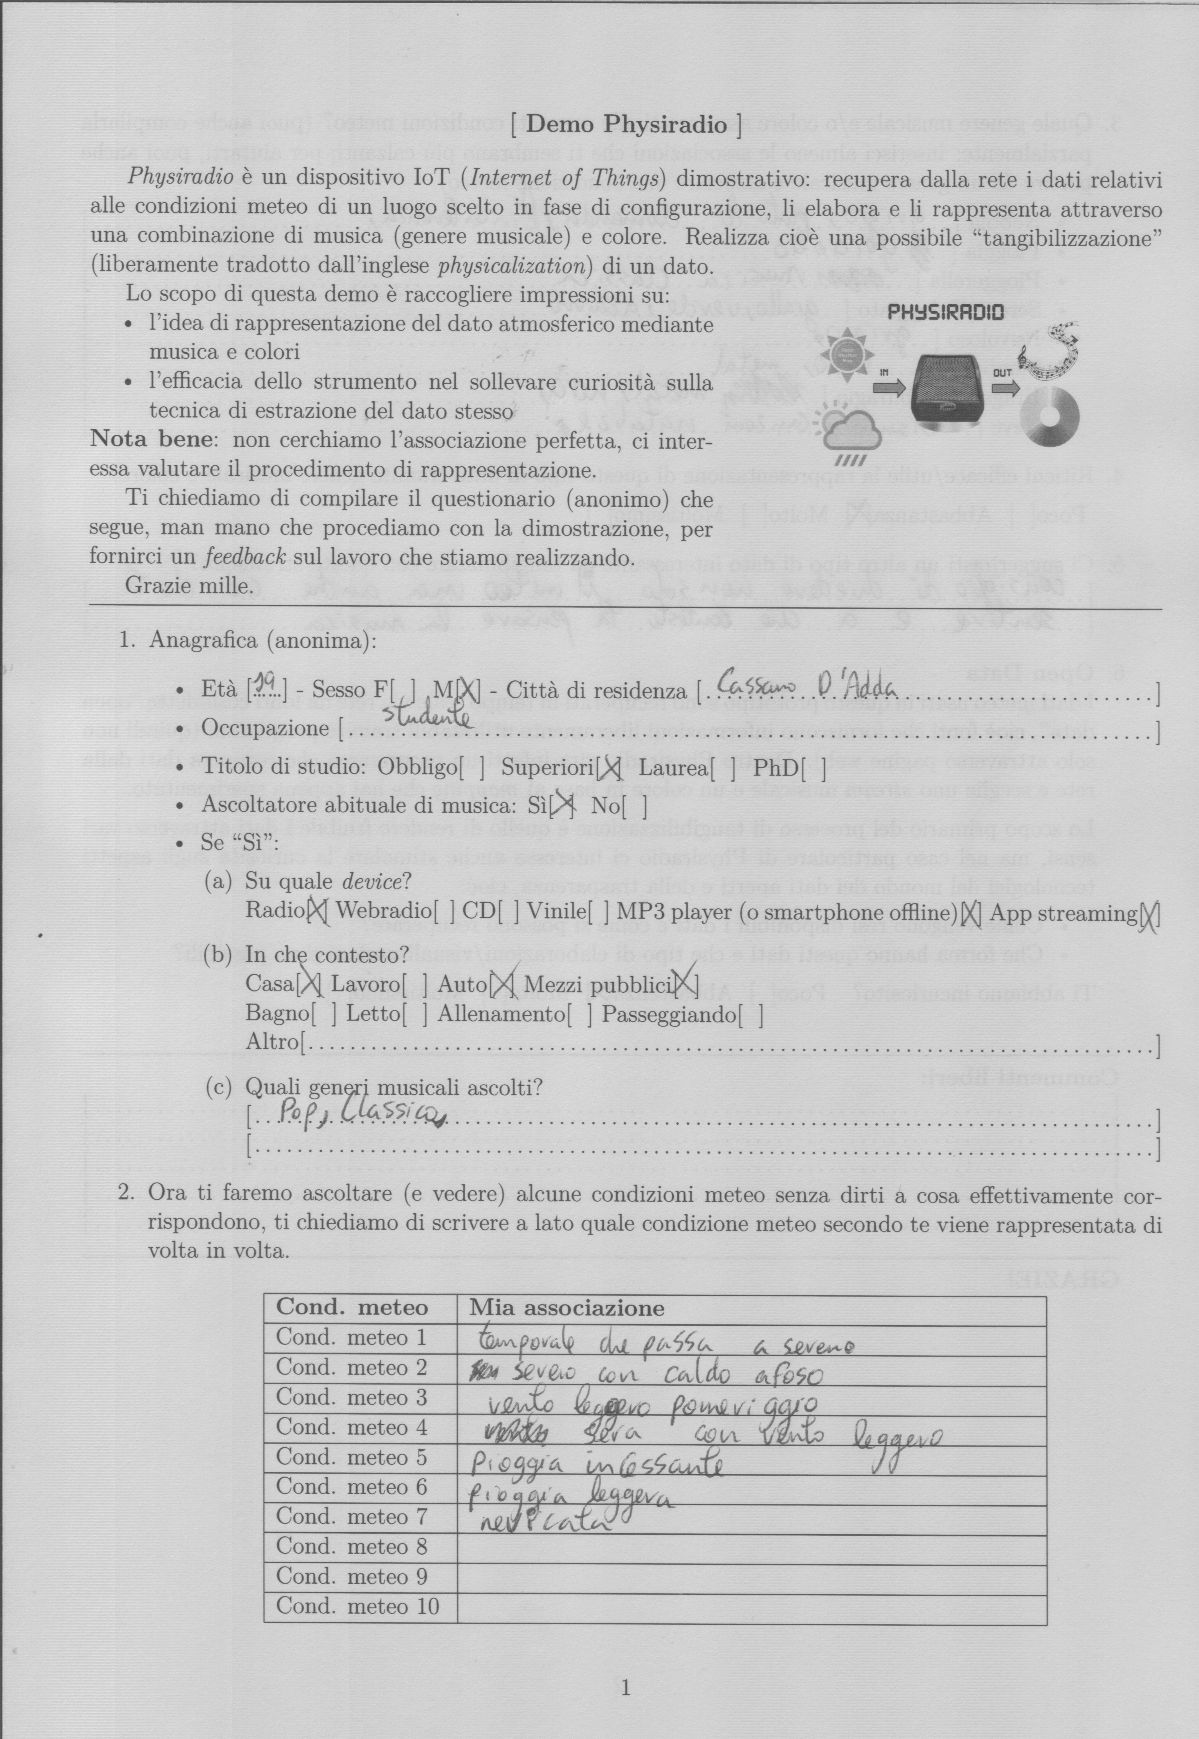 [ Demo Physiradio ]
Physiradio è un dispositivo IoT (Internet of Things) dimostrativo: recupera dalla rete i dati relativi
alle condizioni meteo di un luogo scelto in fase di configurazione, li elabora e li rappresenta attraverso
una combinazione di musica (genere musicale) e colore. Realizza cioè una possibile “tangibilizzazione”
(liberamente tradotto dall'inglese physicalization) di un dato.
Lo scopo di questa demo è raccogliere impressioni su:
• l'idea di rappresentazione del dato atmosferico mediante
musica e colori
• l'efficacia dello strumento nel sollevare curiosità sulla
tecnica di estrazione del dato stesso
Nota bene: non cerchiamo l'associazione perfetta, ci inter-
essa valutare il procedimento di rappresentazione.
Ti chiediamo di compilare il questionario (anonimo) che
segue, man mano che procediamo con la dimostrazione, per
fornirci un feedback sul lavoro che stiamo realizzando.
Grazie mille.
PHYSIRADIO
IN
OUT
1. Anagrafica (anonima):
• Età [19] - Sesso F[ ] M[X] - Città di residenza [Cassano D'Adda]
• Occupazione [studente]
• Titolo di studio: Obbligo[ ] Superiori[X] Laurea[ ] PhD[ ]
• Ascoltatore abituale di musica: Sì[X] No[ ]
• Se “Sì”:
(a) Su quale device?
Radio[X] Webradio[ ] CD[ ] Vinile[ ] MP3 player (o smartphone offline)[X] App streaming[X]
(b) In che contesto?
Casa[X] Lavoro[ ] Auto[X] Mezzi pubblici[X]
Bagno[ ] Letto[ ] Allenamento[ ] Passeggiando[ ]
Altro[ ]
(c) Quali generi musicali ascolti?
[Pop, Classica,]
[ ]
2. Ora ti faremo ascoltare (e vedere) alcune condizioni meteo senza dirti a cosa effettivamente cor-
rispondono, ti chiediamo di scrivere a lato quale condizione meteo secondo te viene rappresentata di
volta in volta.
Cond. meteo Mia associazione
Cond. meteo 1 temporale che passa a sereno
Cond. meteo 2 sereno con caldo afoso
Cond. meteo 3 vento leggero pomeriggio
Cond. meteo 4 sera con vento leggero
Cond. meteo 5 Pioggia incessante
Cond. meteo 6 pioggia leggera
Cond. meteo 7 nevicata
Cond. meteo 8
Cond. meteo 9
Cond. meteo 10
1